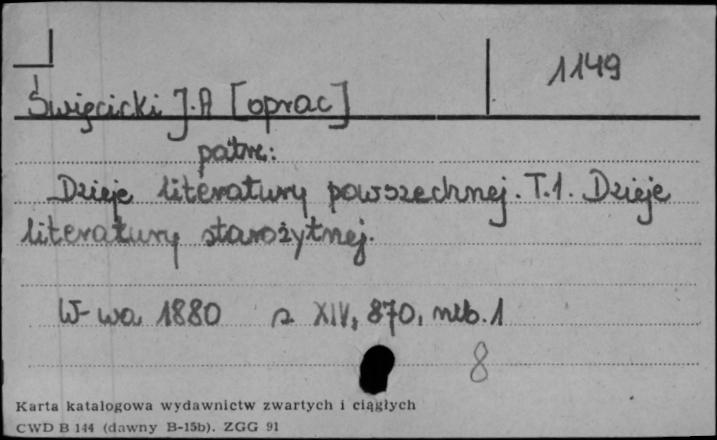 1149
Święcicki J.A [oprac]
patrz:
Dzieje literatury powszechnej. T.1. Dzieje
literatury starożytnej.
W-wa 1880 s XIV, 870, nlb. 1
8
Karta katalogowa wydawnictw zwartych i ciągłych
CWD B 144 (dawny B-15b). ZGG 91